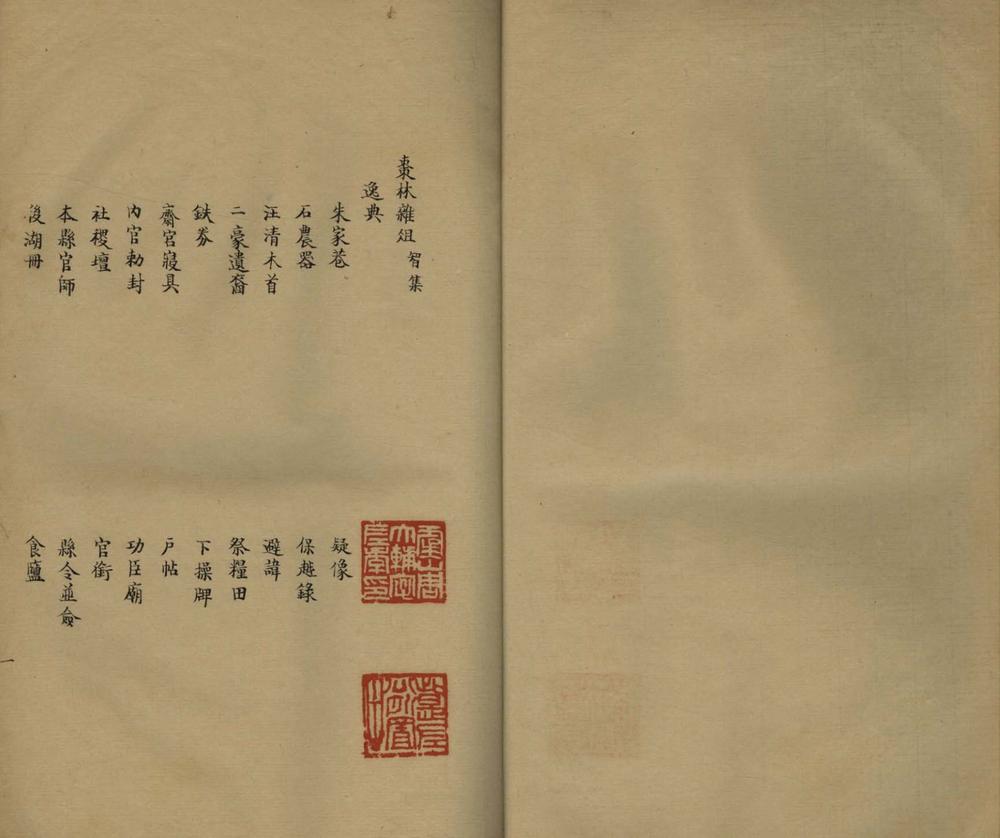 棗林雜俎 智集
逸典
朱家巷
疑像
石農器
保越錄
汪清木首
避諱
二豪遺裔
祭糧田
鉄券
下操牌
齋宮寢具
戶帖
內官勅封
功臣廟
社稷壇
官銜
本縣官師
縣令並僉
後湖冊
食鹽